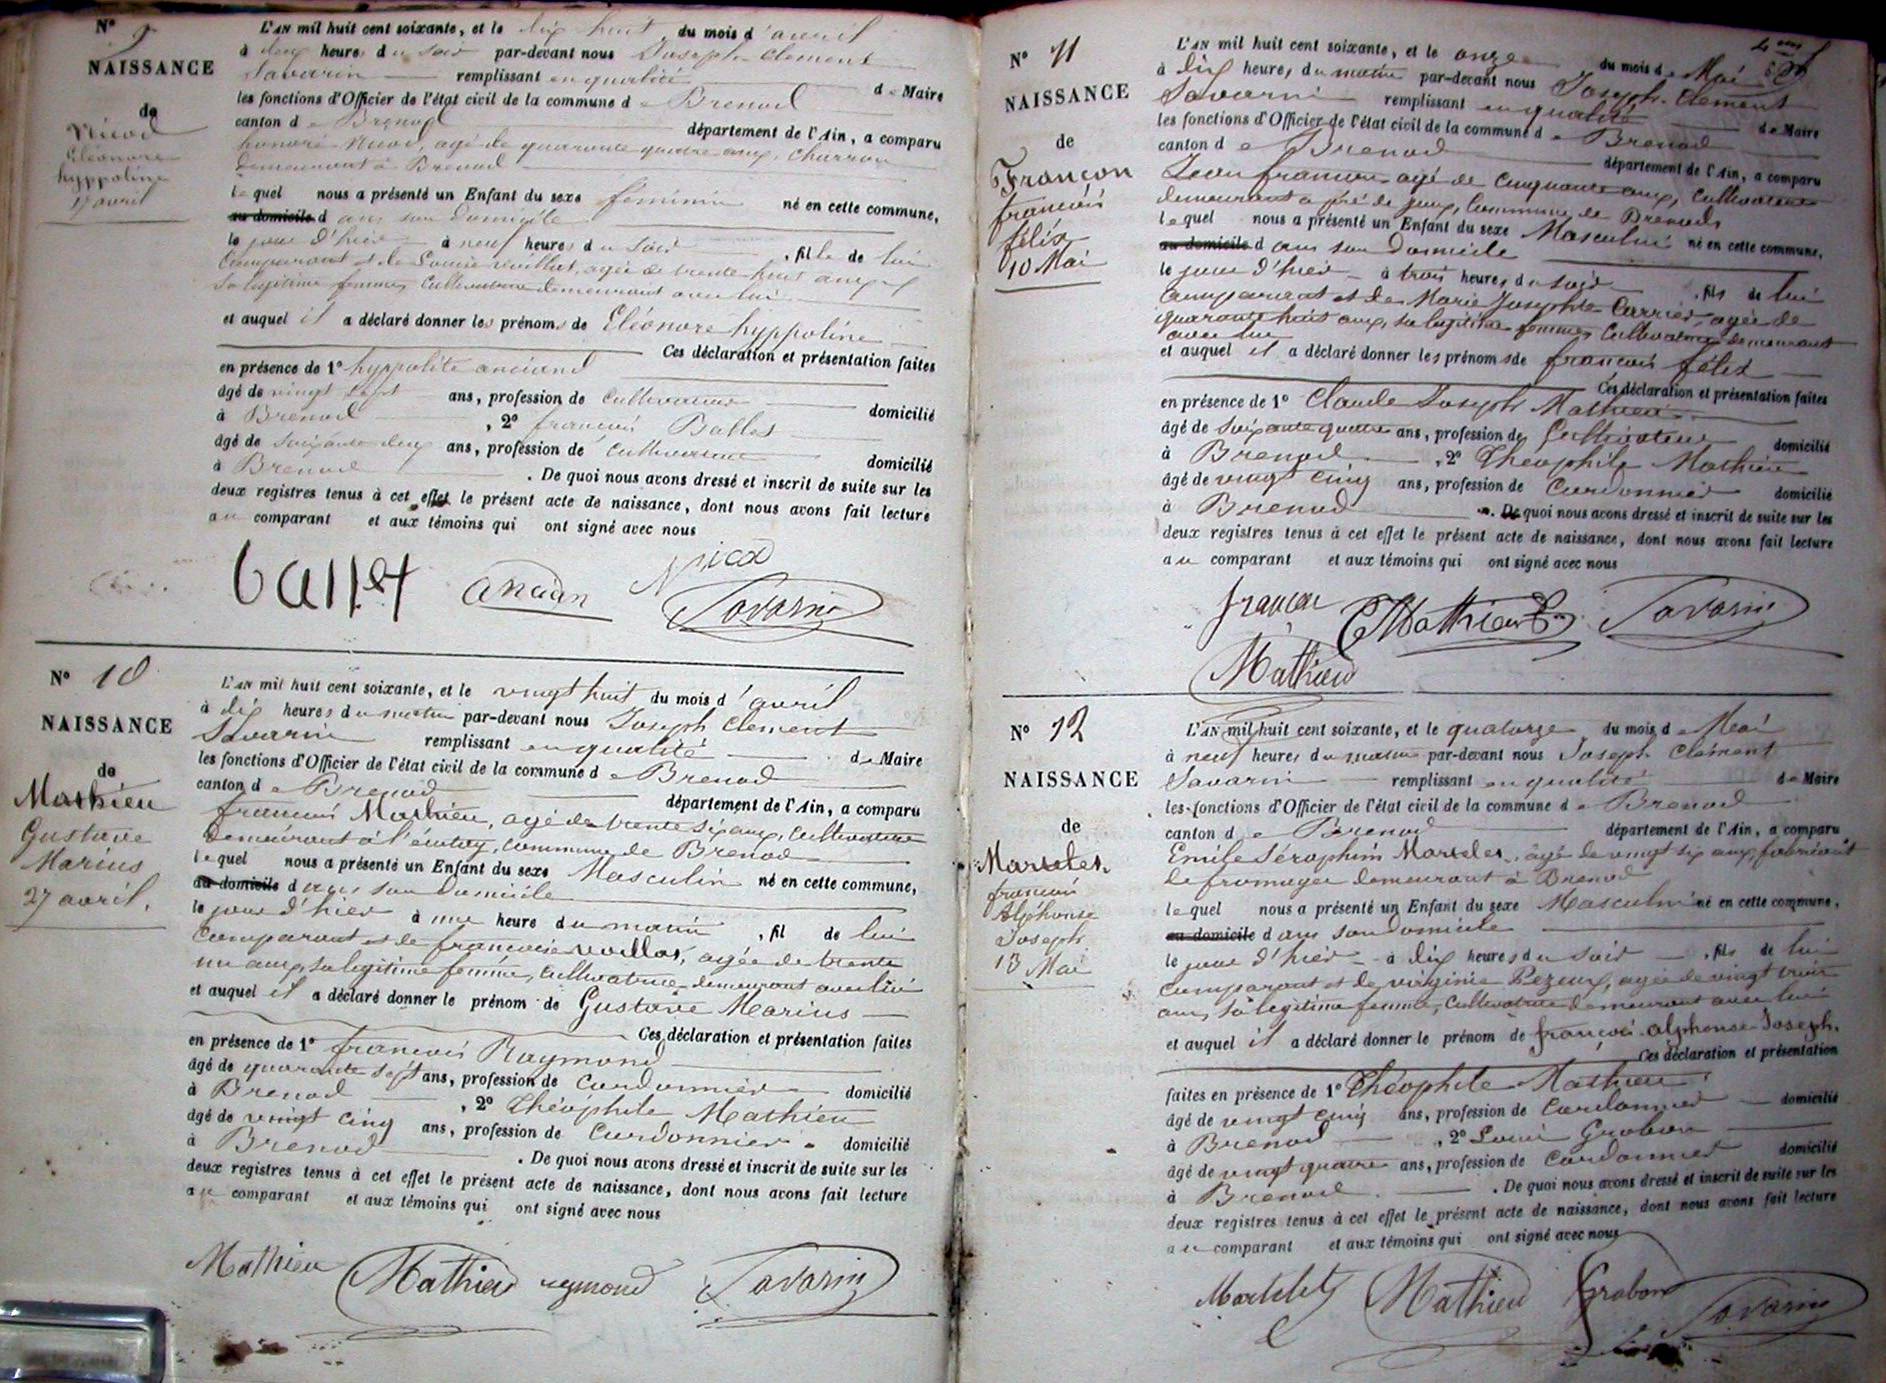 N° 9
NAISSANCE
de
Nicod
Eléonore
hyppoline
17 avril
L'AN mil huit cent soixante, et le dix huit du mois d'avril
à deux heures du soir par-devant nous Joseph Clement
Savarin remplissant en qualité de Maire
les fonctions d'Officier de l'état civil de la commune de Brenod
canton de Brenod département de l'Ain, a comparu
honoré Nicod, agé de quarante quatre ans, Charron
demeurant à Brenod
lequel nous a présenté un Enfant du sexe féminin né en cette commune,
au domicile dans son domicile
le jour d'hier à neuf heures du soir, fille de lui
Comparant et de Louise agée de trente huit ans
sa légitime femme, Cultivatrice demeurant avec lui
et auquel il a déclaré donner les prénoms de Eléonore hyppoline
Ces déclaration et présentation faites
en présence de 1° hyppolite anciand
âgé de vingt sept ans, profession de Cultivateur domicilié
à Brenod, 2° françois Ballet
âgé de soixante deux ans, profession de Cultivateur domicilié
à Brenod. De quoi nous avons dressé et inscrit de suite sur les
deux registres tenus à cet effet le présent acte de naissance, dont nous avons fait lecture
au comparant et aux témoins qui ont signé avec nous
ballet ancian Nicod Savarin
N° 10
NAISSANCE
de
Mathieu
Gustave
Marius
27 avril.
L'AN mil huit cent soixante, et le vingt huit du mois d'avril
à dix heures du matin par-devant nous Joseph Clement
Savarin remplissant en qualité de Maire
les fonctions d'Officier de l'état civil de la commune de Brenod
canton de Brenod département de l'Ain, a comparu
françois Mathieu, agé de trente six ans, Cultivateur
demeurant à commune de Brenod
lequel nous a présenté un Enfant du sexe Masculin né en cette commune,
au domicile dans son domicile
le jour d'hier à une heure du matin, fil de lui
Comparant et de françoise agée de trente
un ans, sa légitime femme, Cultivatrice demeurant avec lui
et auquel il a déclaré donner le prénom de Gustave Marius
Ces déclaration et présentation faites
en présence de 1° françois Raymond
âgé de quarante sept ans, profession de Cordonnier domicilié
à Brenod, 2° Théophile Mathieu
âgé de vingt cinq ans, profession de Cordonnier domicilié
à Brenod. De quoi nous avons dressé et inscrit de suite sur les
deux registres tenus à cet effet le présent acte de naissance, dont nous avons fait lecture
au comparant et aux témoins qui ont signé avec nous
Mathieu Mathieu reymond Savarin
N° 11
NAISSANCE
de
Françon
françois
félix
10 Mai
L'AN mil huit cent soixante, et le onze du mois de Mai
à dix heures du matin par-devant nous Joseph-Clement
Savarin remplissant en qualité de Maire
les fonctions d'Officier de l'état civil de la commune de Brenod
canton de Brenod département de l'Ain, a comparu
Jean françon agé de Cinquante ans, Cultivateur
demeurant à commune de Brenod
lequel nous a présenté un Enfant du sexe Masculin né en cette commune,
au domicile dans son domicile
le jour d'hier à trois heures du soir, fils de lui
Comparant et de Marie Josephte Carrier, agée de
quarante huit ans, sa légitime femme, Cultivatrice demeurant
avec lui
et auquel il a déclaré donner les prénoms de françois félix
Ces déclaration et présentation faites
en présence de 1° Claude Joseph Mathieu
âgé de soixante quatre ans, profession de Cultivateur domicilié
à Brenod, 2° Théophile Mathieu
âgé de vingt cinq ans, profession de Cordonnier domicilié
à Brenod. De quoi nous avons dressé et inscrit de suite sur les
deux registres tenus à cet effet le présent acte de naissance, dont nous avons fait lecture
au comparant et aux témoins qui ont signé avec nous
françon Mathieu Savarin
Mathieu
N° 12
NAISSANCE
de
Martelet
françois
Alphonse
Joseph
13 Mai
L'AN mil huit cent soixante, et le quatorze du mois de Mai
à neuf heures du matin par-devant nous Joseph Clément
Savarin remplissant en qualité de Maire
les fonctions d'Officier de l'état civil de la commune de Brenod
canton de Brenod département de l'Ain, a comparu
Emile Séraphin Martelet, agé de vingt six ans, fabricant
de fromages demeurant à Brenod
lequel nous a présenté un Enfant du sexe Masculin né en cette commune,
au domicile dans son domicile
le jour d'hier à dix heures du soir, fils de lui
Comparant et de virginie agée de vingt trois
ans, sa légitime femme, Cultivatrice demeurant avec lui
et auquel il a déclaré donner le prénom de françois-alphonse Joseph.
Ces déclaration et présentation
faites en présence de 1° Théophile Mathieu
âgé de vingt cinq ans, profession de Cordonnier domicilié
à Brenod, 2° Louis Grobon
âgé de vingt quatre ans, profession de Cordonnier domicilié
à Brenod. De quoi nous avons dressé et inscrit de suite sur les
deux registres tenus à cet effet le présent acte de naissance, dont nous avons fait lecture
au comparant et aux témoins qui ont signé avec nous
Martelet Mathieu Grobon Savarin